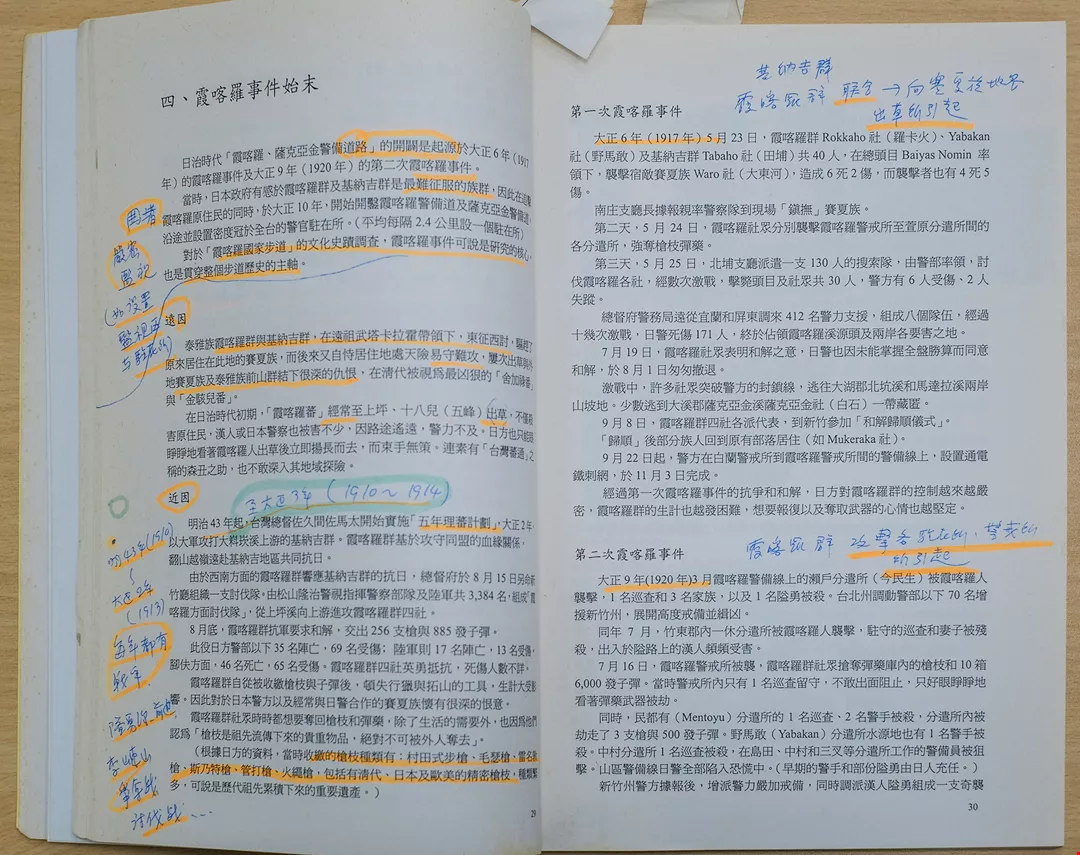 四、霞喀羅事件始末
日治時代「霞喀羅、薩克亞金警備道路」的開闢是起源於大正6年(1917
年)的霞喀羅事件及大正9年(1920年)的第二次霞喀羅事件。
當時,日本政府有感於霞喀羅群及基納吉群是最難征服的族群,因此在
霞喀羅原住民的同時,於大正10年,開始開鑿霞喀羅警備道及薩克亞金警備道,
沿途並設置密度冠於全台的警官駐在所。(平均每隔2.4公里設一個駐在所)
對於「霞喀羅國家步道」的文化史蹟調查,霞喀羅事件可說是研究的核心,
也是貫穿整個步道歷史的主軸。
圍堵
嚴密
監視
(如設置
遠因
泰雅族霞喀羅群與基納吉群,在遠祖武塔卡拉霍帶領下,東征西討,驅趕了
原來居住在此地的賽夏族,而後來又自恃居住地處天險易守難攻,屢次出草與外
地賽夏族及泰雅族前山群結下很深的仇恨,在清代被視為最凶狠的「舍加祿番」
與「金駭兒番」。
在日治時代初期,「霞喀羅蕃」經常至上坪、十八兒(五峰)出草,不僅殺
害原住民,漢人或日本警察也被害不少,因路途遙遠,警力不及,日方也只能眼
睜睜地看著霞喀羅人出草後立即揚長而去,而束手無策。連素有「台灣蕃通」之
稱的森丑之助,也不敢深入其地域探險。
近因
至大正3年(1910~1914)
明治43年起,台灣總督佐久間佐馬太開始實施「五年理蕃計劃」,大正2年,
以大軍攻打大料崁溪上游的基納吉群。霞喀羅群基於攻守同盟的血緣關係,
翻山越嶺遠赴基納吉地區共同抗日。
由於西南方面的霞喀羅群響應基納吉群的抗日,總督府於8月15日另命新
竹廳組織一支討伐隊。由松山隆治警視指揮警察部隊及陸軍共3,384名,組成「霞
喀羅方面討伐隊」,從上坪溪向上游進攻霞喀羅群四社。
8月底,霞喀羅群抗軍要求和解,交出256支槍與885發子彈。
此役日方警部以下35名陣亡,69名受傷;陸軍則17名陣亡,13名受傷,
腳伕方面,46名死亡,65名受傷。霞喀羅群四社英勇抵抗,死傷人數不詳。
霞喀羅群自從被收繳槍枝與子彈後,頓失行獵與拓山的工具,生計大受影
響。因此對於日本警方以及經常與日警合作的賽夏族懷有很深的恨意。
霞喀羅群社眾時時都想要奪回槍枝和彈藥,除了生活的需要外,也因為他們
認為「槍枝是祖先流傳下來的貴重物品,絕對不可被外人奪去」。
(根據日方的資料,當時收繳的槍枝種類有:村田式步槍、毛瑟槍、雷名敦
槍、斯乃特槍、管打槍、火繩槍,包括有清代、日本及歐美的精密槍枝,種類繁
多,可說是歷代祖先累積下來的重要遺產。)
明43年(1910)
大正2年
(1913)
每年都有
戰爭
李崠山
討伐戰…
29
基納吉群
霞喀羅群 聯合→向賽夏族地界
出草所引起
第一次霞喀羅事件
大正6年(1917年)5月23日,霞喀羅群Rokkaho社(羅卡火)、Yabakan
社(野馬敢)及基納吉群Tabaho社(田埔)共40人,在總頭目Baiyas Nomin 率
領下,襲擊宿敵賽夏族Waro社(大東河),造成6死2傷,而襲擊者也有4死5
傷。
南庄支廳長據報親率警察隊到現場「鎮撫」賽夏族。
第二天,5月24日,霞喀羅社眾分別襲擊霞喀羅警戒所至萱原分遣所間的
各分遣所,強奪槍枝彈藥。
第三天,5月25日,北埔支廳派遣一支130人的搜索隊,由警部率領,討
伐霞喀羅各社,經數次激戰,擊斃頭目及社眾共30人,警方有6人受傷、2人
失蹤。
總督府警務局遠從宜蘭和屏東調來412名警力支援,組成八個隊伍,經過
十幾次激戰,日警死傷171人,終於佔領霞喀羅溪源頭及兩岸各要害之地。
7月19日,霞喀羅社眾表明和解之意,日警也因未能掌握全盤勝算而同意
和解,於8月1日匆匆撤退。
激戰中,許多社眾突破警方的封鎖線,逃往大湖郡北坑溪和馬達拉溪兩岸
山坡地。少數逃到大溪郡薩克亞金溪薩克亞金社(白石)一帶藏匿。
9月8日,霞喀羅群四社各派代表,到新竹參加「和解歸順儀式」。
「歸順」後部分族人回到原有部落居住(如Mukeraka社)。
9月22日起,警方在白蘭警戒所到霞喀羅警戒所間的警備線上,設置通電
鐵刺網,於11月3日完成。
經過第一次霞喀羅事件的抗爭和和解,日方對霞喀羅群的控制越來越嚴
密,霞喀羅群的生計也越發困難,想要報復以及奪取武器的心情也越堅定。
霞喀羅群 攻擊各駐在所、警戒所
所引起
第二次霞喀羅事件
大正9年(1920年)3月霞喀羅警備線上的瀨戶分遣所(今民生)被霞喀羅人
襲擊,1名巡查和3名家族,以及1名隘勇被殺。台北州調動警部以下70名增
援新竹州,展開高度戒備並緝凶。
同年7月,竹東郡內一休分遣所被霞喀羅人襲擊,駐守的巡查和妻子被殘
殺,出入於隘路上的漢人頻頻受害。
7月16日,霞喀羅警戒所被襲,霞喀羅群社眾搶奪彈藥庫內的槍枝和10箱
6,000發子彈。當時警戒所內只有1名巡查留守,不敢出面阻止,只好眼睜睜地
看著彈藥武器被劫。
同時,民都有(Mentoyu)分遣所的1名巡查、2名警手被殺,分遣所內被
劫走了3支槍與500發子彈。野馬敢(Yabakan)分遣所水源地也有1名警手被
殺。中村分遣所1名巡查被殺,在島田、中村和三叉等分遣所工作的警備員被狙
擊。山區警備線日警全部陷入恐慌中。(早期的警手和部份隘勇由日人充任。)
新竹州警方據報後,增派警力嚴加戒備,同時調派漢人隘勇組成一支奇襲
30